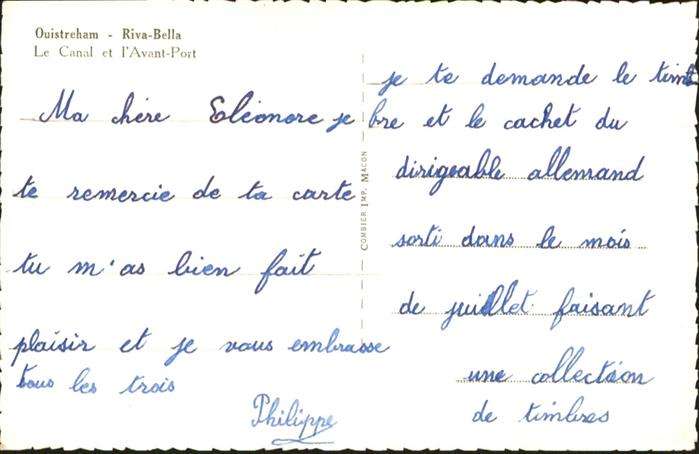 Ouistreham - Riva-Bella
Le Canal et l'Avant-Port
Ma chère Eléonore je
te remercie de ta carte
tu m'as bien fait
plaisir et je vous embrasse
tous les trois
Philippe
COMBIER IMP. MACON
je te demande le tim
bre et le cachet du
dirigeable allemand
sorti dans le mois
de juillet faisant
une collection
de timbres